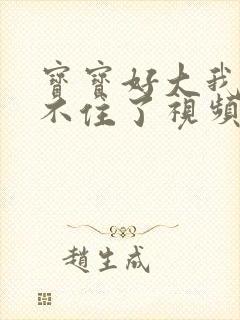 寶寶好大我
不住了視頻
趙生成